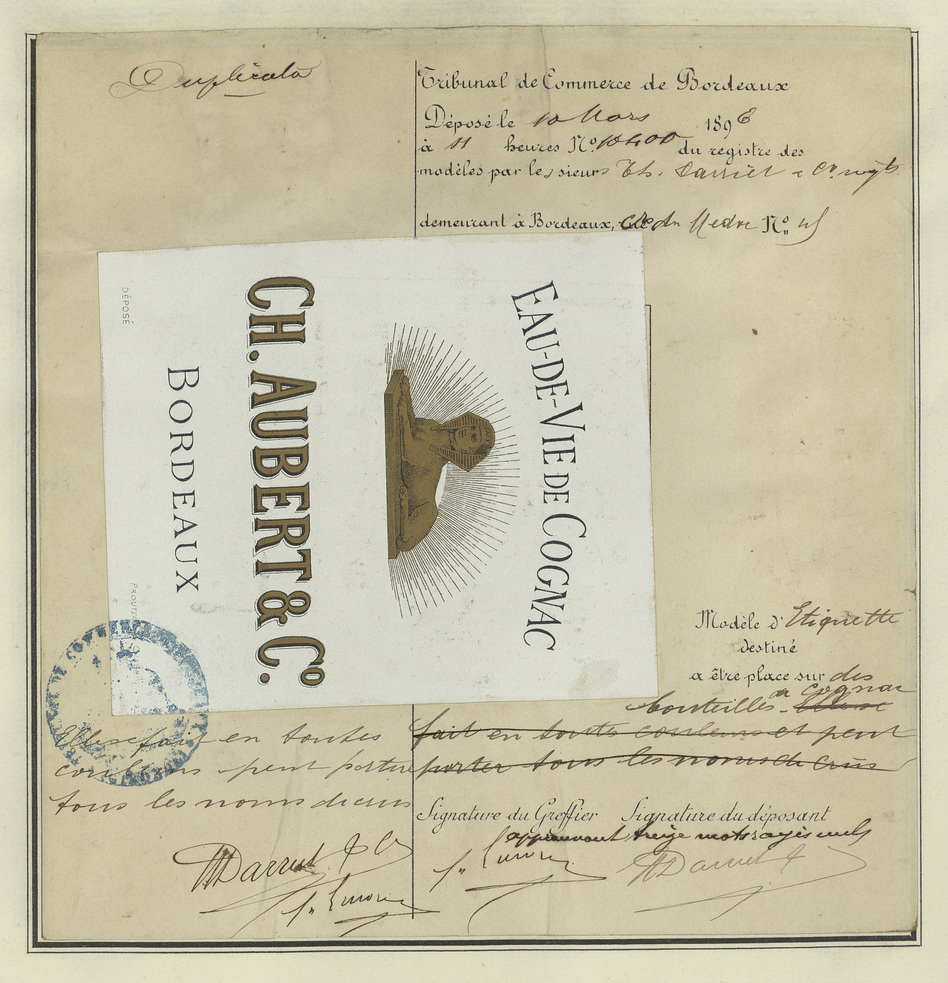 Duplicata
Tribunal de Commerce de Bordeaux
Déposé le 10 Mars 1896
à 11 heures N° 10400 du registre des
modèles par les sieurs Th. &
demeurant à Bordeaux, du N°
EAU-DE-VIE DE COGNAC
CH. AUBERT & Co.
BORDEAUX
DÉPOSÉ
Modèle d'Etiquette
destiné
a être place sur des
bouteilles de cognac
fait en toutes couleurs et peut
porter tous les noms de crus
Elle se fait en toutes
couleurs peut porter
tous les noms de crus
Signature du Greffier Signature du déposant
approuvant treize mots rayés nuls